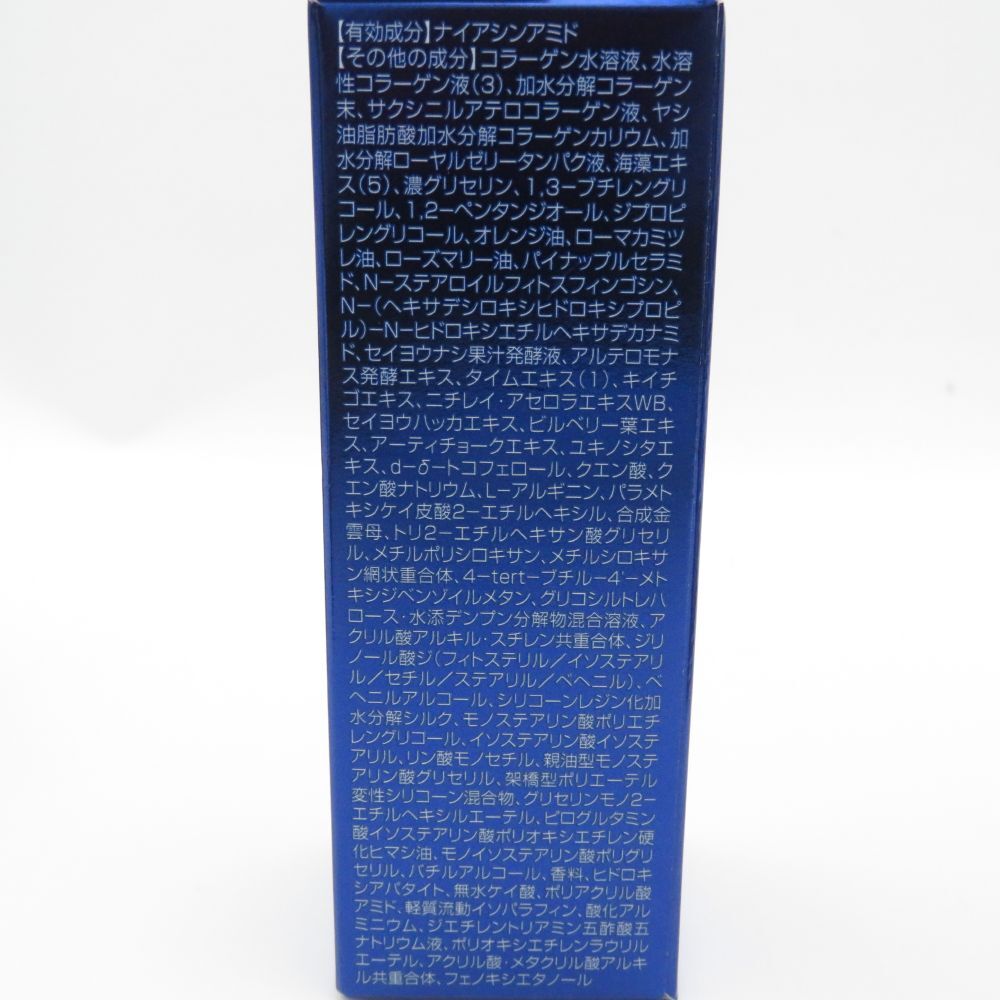 【有効成分】ナイアシンアミド
【その他の成分】コラーゲン水溶液、水溶
性コラーゲン液(3)、加水分解コラーゲン
末、サクシニルアテロコラーゲン液、ヤシ
油脂肪酸加水分解コラーゲンカリウム、加
水分解ローヤルゼリータンパク液、海藻エキ
ス(5)、濃グリセリン、1,3−ブチレングリ
コール、1,2−ペンタンジオール、ジプロピ
レングリコール、オレンジ油、ローマカミツ
レ油、ローズマリー油、パイナップルセラミ
ド、N−ステアロイルフィトスフィンゴシン、
N−(ヘキサデシロキシヒドロキシプロピ
ル)−N−ヒドロキシエチルヘキサデカナミ
ド、セイヨウナシ果汁発酵液、アルテロモナ
ス発酵エキス、タイムエキス(1)、キイチ
ゴエキス、ニチレイ・アセロラエキスWB、
セイヨウハッカエキス、ビルベリー葉エキ
ス、アーティチョークエキス、ユキノシタエ
キス、d−δ−トコフェロール、クエン酸、ク
エン酸ナトリウム、L−アルギニン、パラメト
キシケイ皮酸2−エチルヘキシル、合成金
雲母、トリ2−エチルヘキサン酸グリセリ
ル、メチルポリシロキサン、メチルシロキサ
ン網状重合体、4−tert−ブチル−4'−メト
キシジベンゾイルメタン、グリコシルトレハ
ロース・水添デンプン分解物混合溶液、ア
クリル酸アルキル・スチレン共重合体、ジリ
ノール酸ジ(フィトステリル／イソステアリ
ル／セチル／ステアリル／ベヘニル)、ベ
ヘニルアルコール、シリコーンレジン化加
水分解シルク、モノステアリン酸ポリエチ
レングリコール、イソステアリン酸イソステ
アリル、リン酸モノセチル、親油型モノステ
アリン酸グリセリル、架橋型ポリエーテル
変性シリコーン混合物、グリセリンモノ2−
エチルヘキシルエーテル、ピログルタミン
酸イソステアリン酸ポリオキシエチレン硬
化ヒマシ油、モノイソステアリン酸ポリグリ
セリル、バチルアルコール、香料、ヒドロキ
シアパタイト、無水ケイ酸、ポリアクリル酸
アミド、軽質流動イソパラフィン、酸化アル
ミニウム、ジエチレントリアミン五酢酸五
ナトリウム液、ポリオキシエチレンラウリル
エーテル、アクリル酸・メタクリル酸アルキ
ル共重合体、フェノキシエタノール